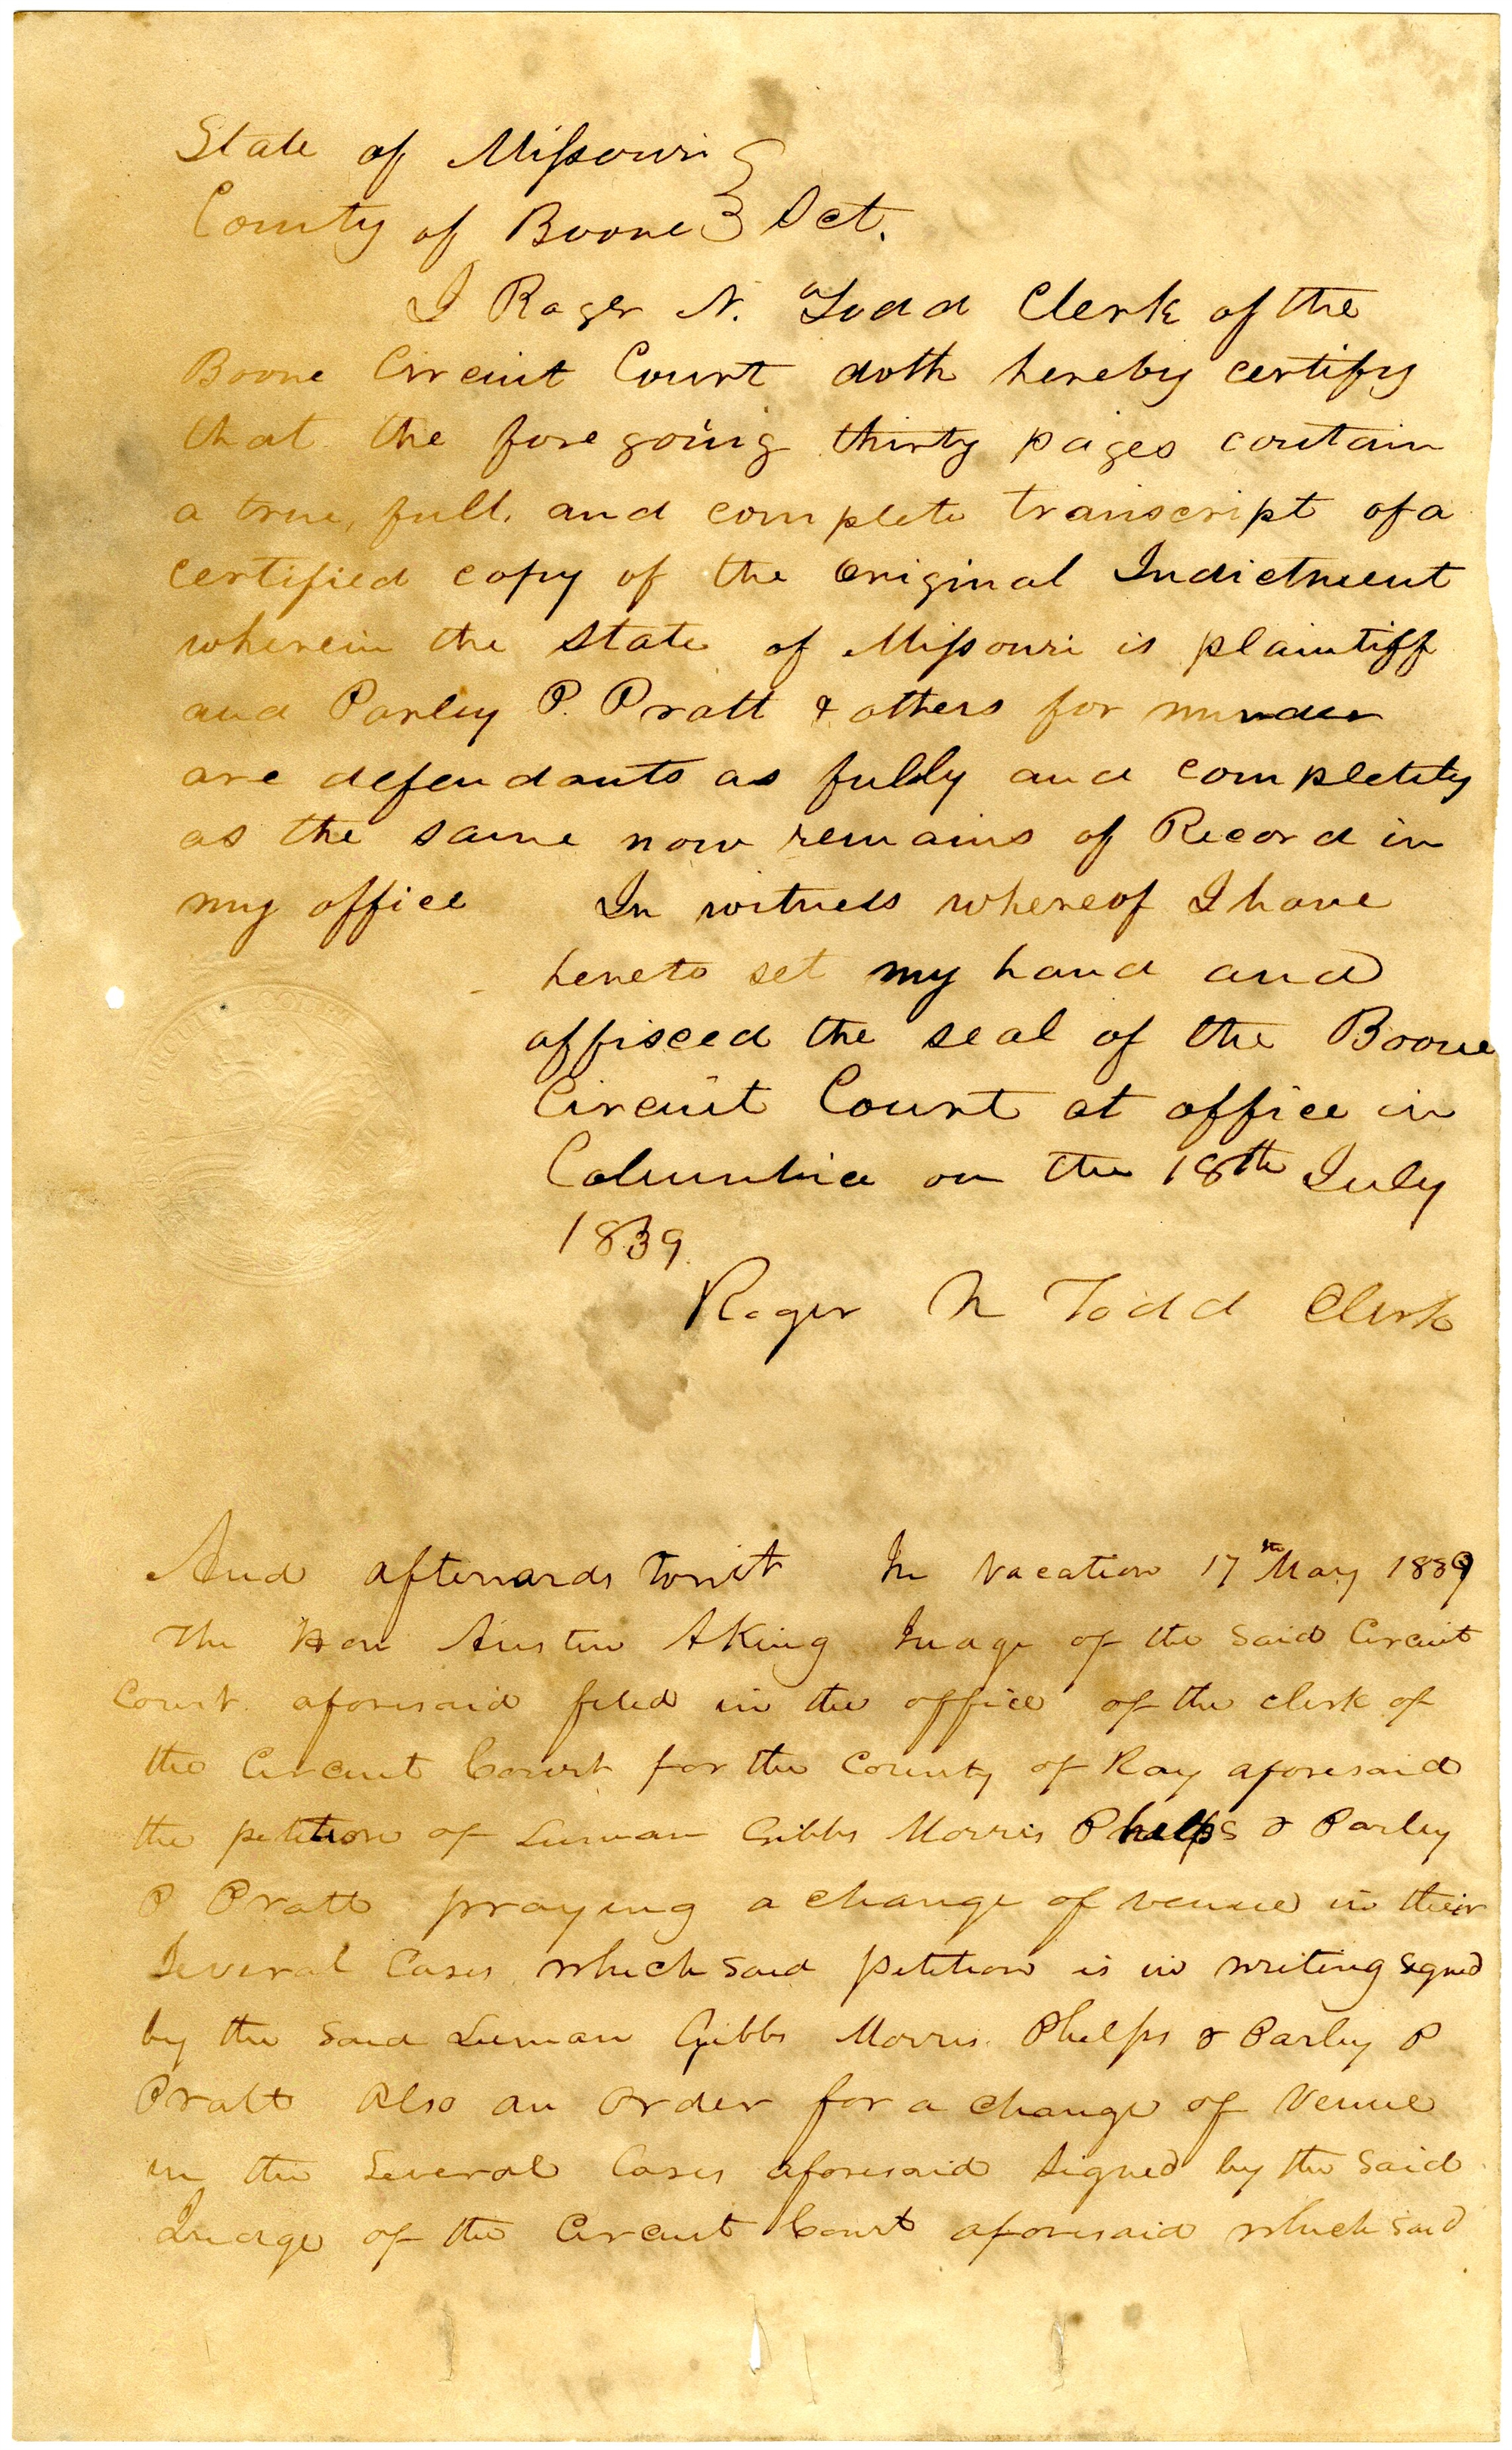 State of Missouri }
County of Boone } Sct.
I Roger N. Todd Clerk of the
Boone Circuit Court doth hereby certify
that the foregoing thirty pages contain
a true, full, and complete transcript of a
certified copy of the Original Indictment
wherein the State of Missouri is plaintiff
and Parley P. Pratt & others for murder
are defendants as fully and completely
as the same now remains of Record in
my office In witness whereof I have
hereto set my hand and
affixed the seal of the Boone
Circuit Court at office in
Columbia on the 18th July
1839.
Roger N Todd Clerk
And afterwards towit In Vacation 17th May 1839
The Hon Austin A King Judge of the Said Circuit
Court aforesaid filed in the office of the clerk of
the Circuit Court for the County of Ray aforesaid
the petition of Luman Gibbs Morris Phelps & Parley
P Pratt praying a change of venue in their
Several Cases which Said petition is in writing signed
by the Said Luman Gibbs Morris Phelps & Parley P
Pratt Also an order for a change of Venue
in the Several Cases aforesaid Signed by the Said
Judge of the Circuit Court aforesaid which Said